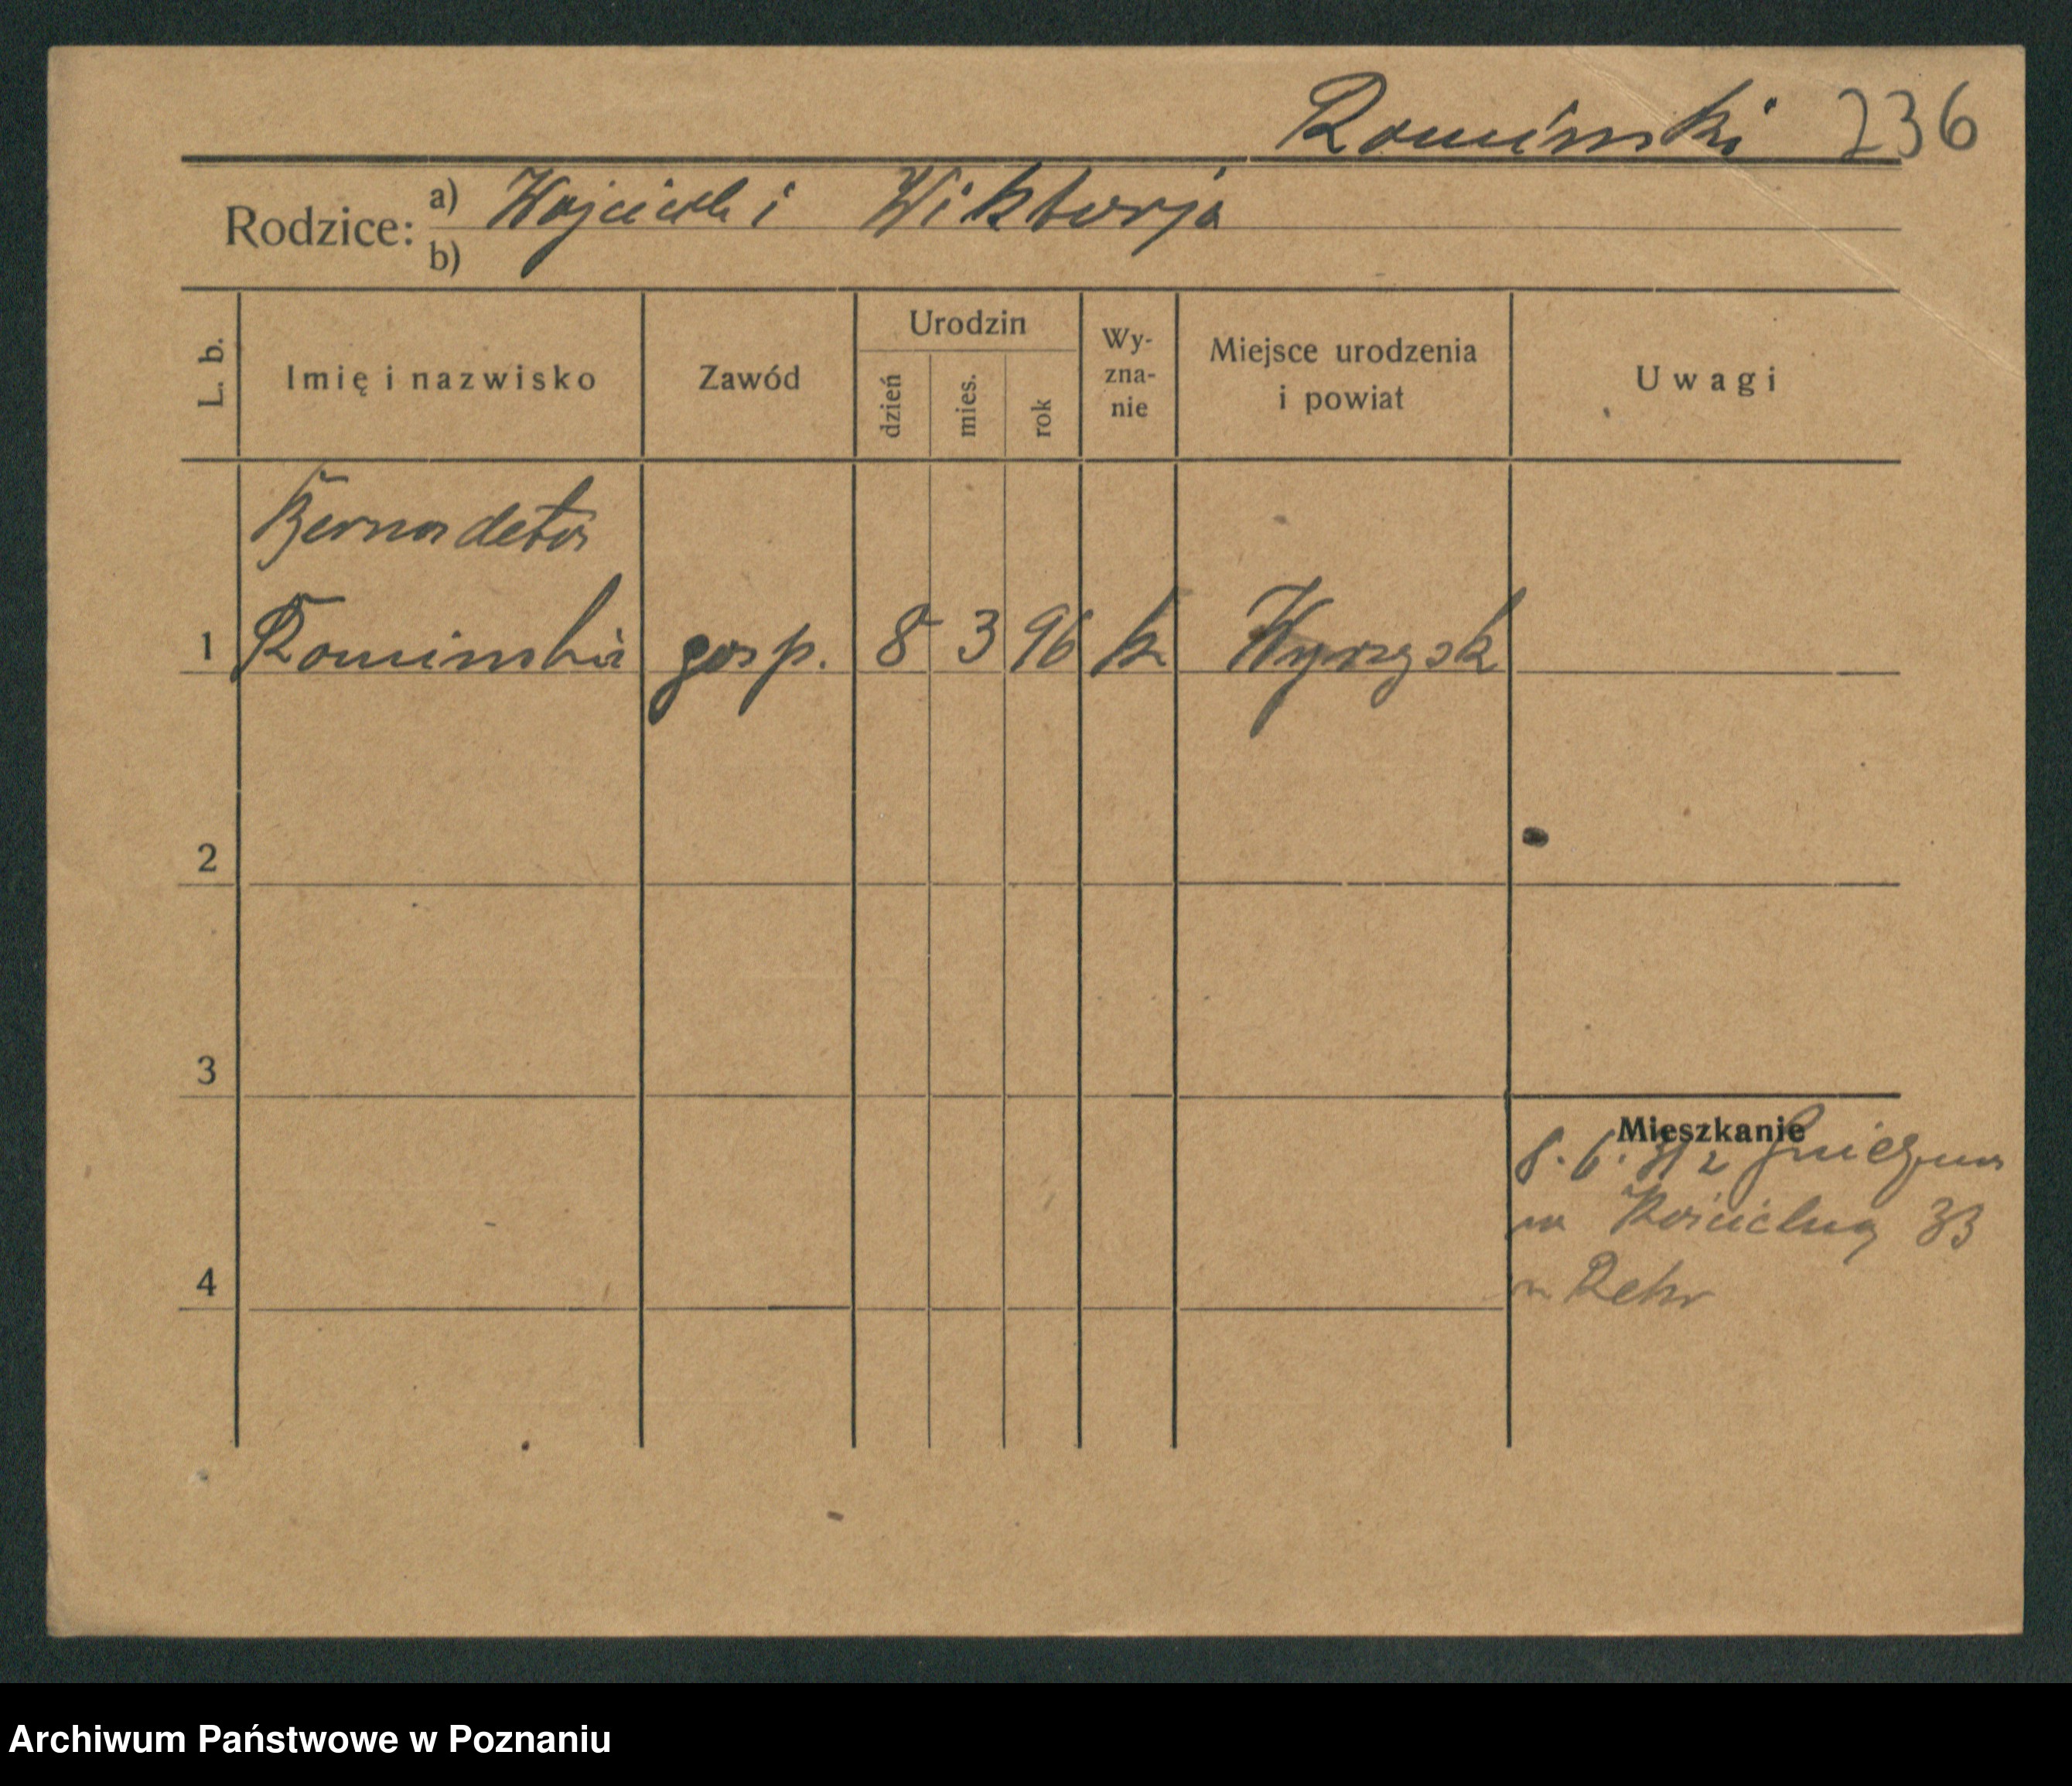 Rominski 236
Rodzice: a) Wojciech i Wiktorja
b)
L. b.
Imię i nazwisko
Zawód
Urodzin
dzień
mies.
rok
Wy-
zna-
nie
Miejsce urodzenia
i powiat
Uwagi
Bernadeta
1 Rominska gosp. 8 3 96 k Wyrzysk
2
3
Mieszkanie
8. 6. 31 z Gniezna
na Kościelną 33
4
Archiwum Państwowe w Poznaniu